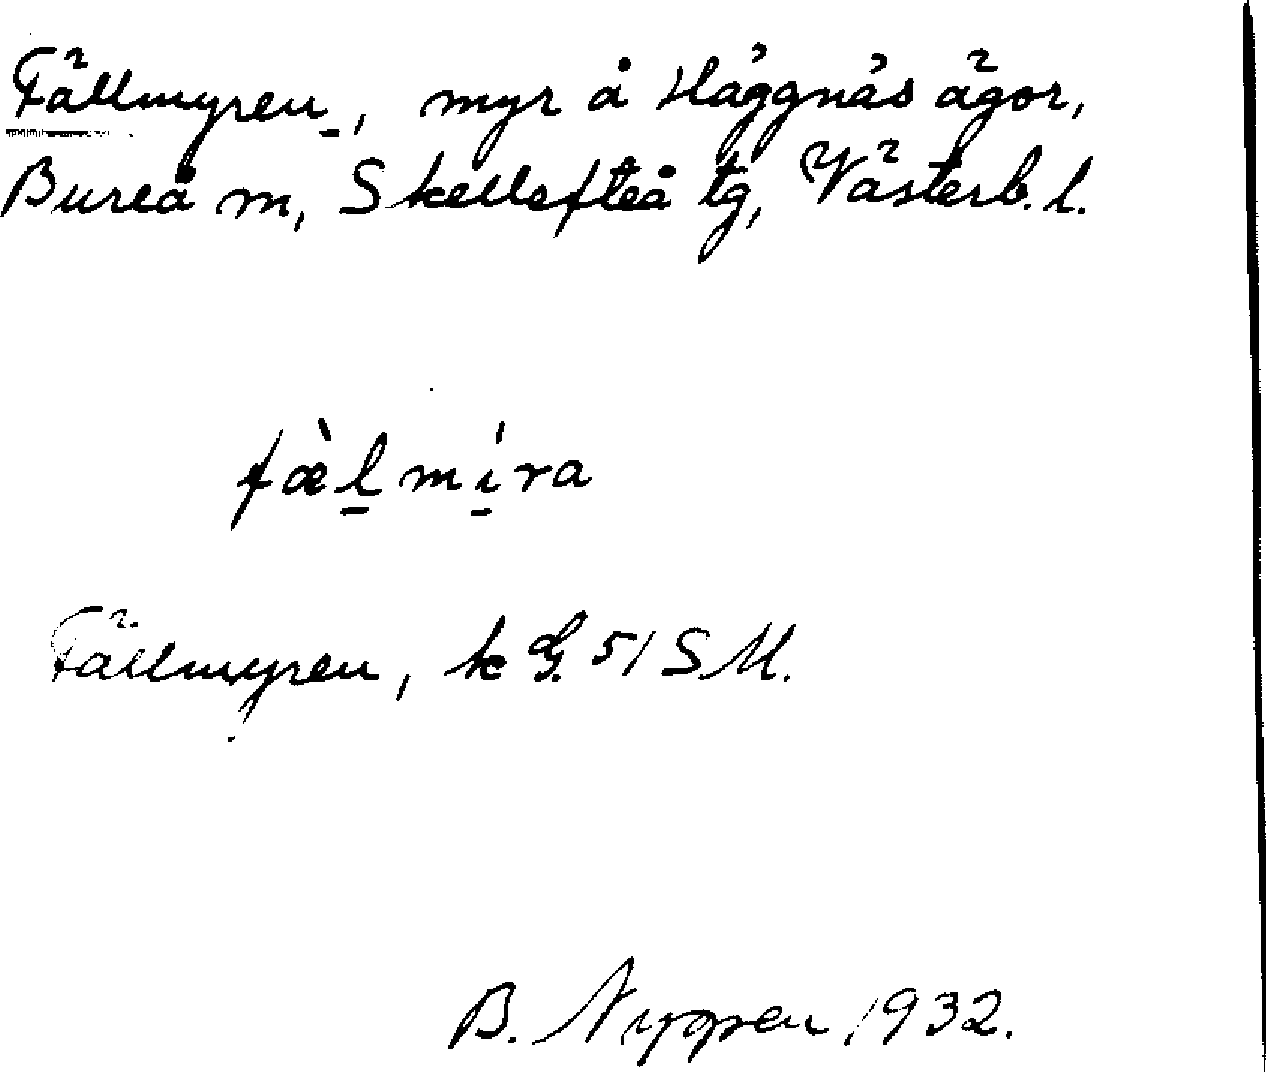 Fällmyren, myr å Häggnäs ägor,
Bureå m, Skellefteå tg, Västerb. l.
fæ̀l̠mí̠ra
Fällmyren, k G. 51 SM.
B. 1932.